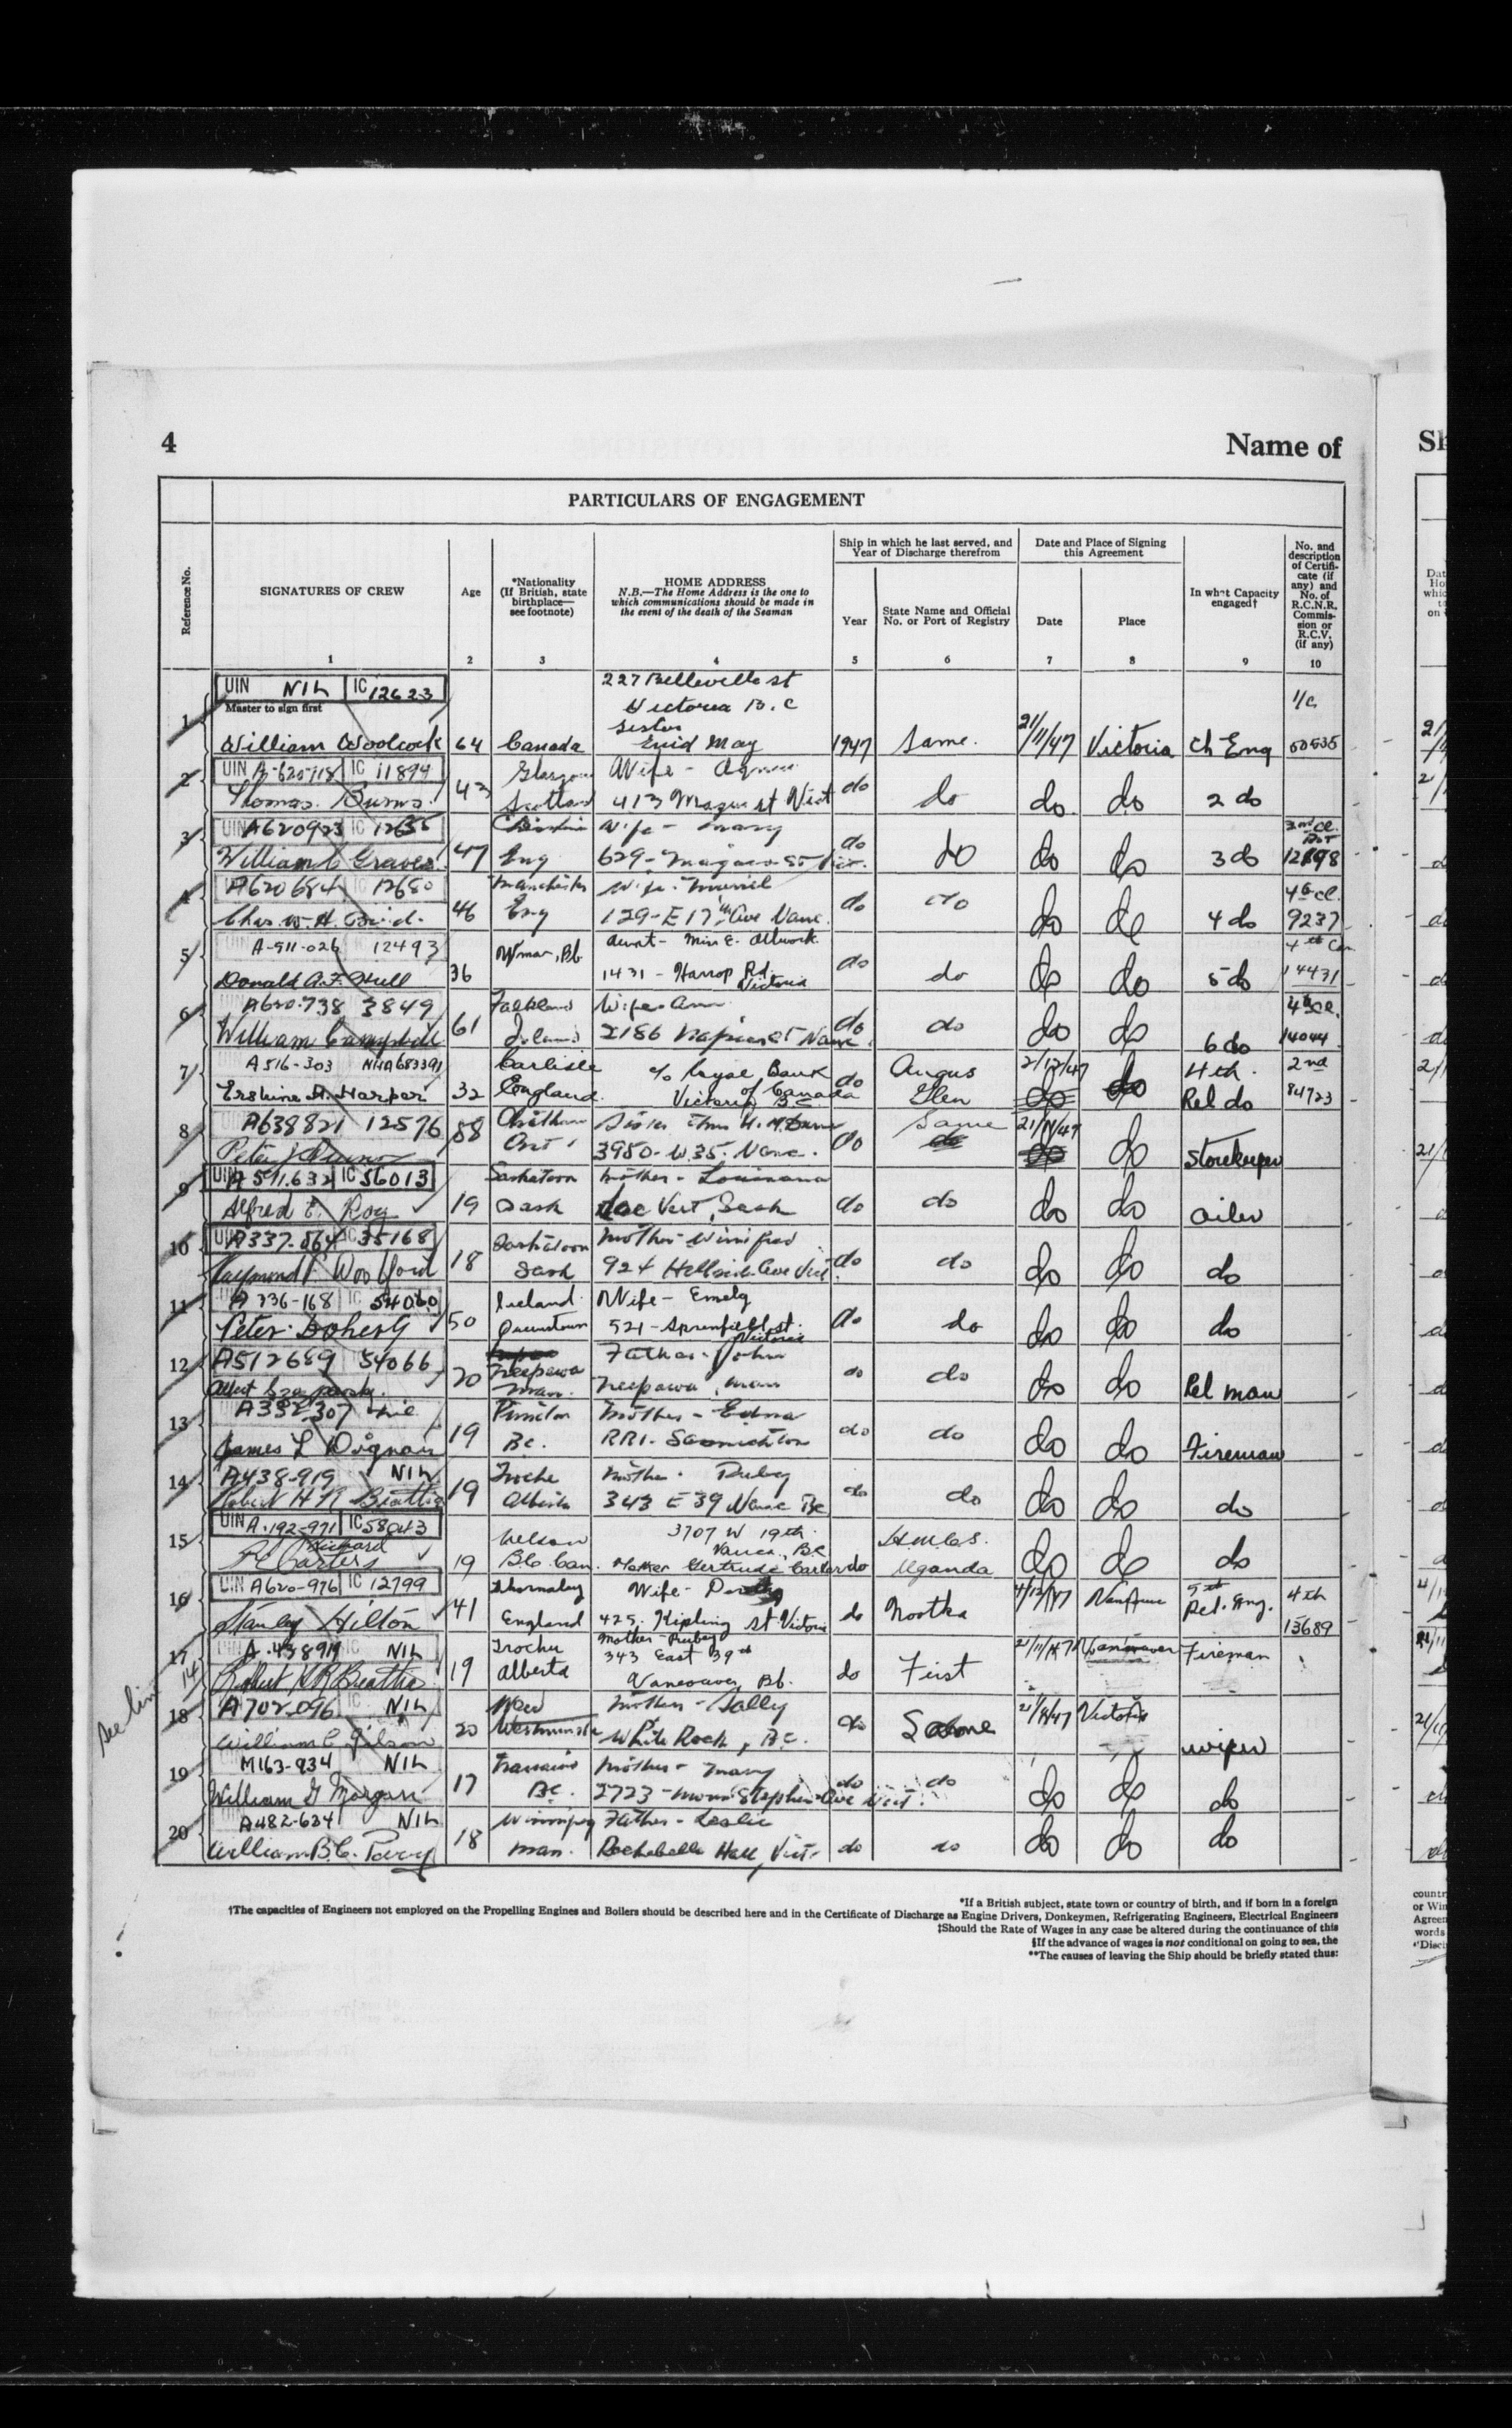 4
Name of
Sh
PARTICULARS OF ENGAGEMENT
Reference No.
SIGNATURES OF CREW
Age
*Nationality
(If British, state
birthplace—
see footnote)
HOME ADDRESS
N.B.—The Home Address is the one to
which communications should be made in
the event of the death of the Seaman
Ship in which he last served, and
Year of Discharge therefrom
Year
State Name and Official
No. or Port of Registry
Date and Place of Signing
this Agreement
Date
Place
In what Capacity
engaged†
No. and
description
of Certifi-
cate (if
any) and
No. of
R.C.N.R.
Commis-
sion or
R.C.V.
(if any)
1 2 3 4 5 6 7 8 9 10
1 UIN NIL IC 12623
Master to sign first
227 Belleville st
Victoria B.C
Sister
1/c
William Woolcock 64 Canada Enid May 1947 Same. 21/11/47 Victoria Ch Eng
2 UIN IC 11894 Glasgow Wife -
Thomas Burns 43 Scotland 413 st Vict do do do do 2 do
3 UIN A620923 IC 12635 Wife - Mary
William C Graves 47 Eng 629 do do do do 3 do
4 A620684 12680 Manchester Wife - Muriel 4th Cl.
Chas W. H. 46 Eng 129 - E 17th Ave Vanc. do do do do 4 do 9237
5 A-511-026 12493 Aunt - Miss E. 4th
Donald A.F. Hull 36 1431 - Harrop Rd. Victoria do do do do 5 do 14431
6 A620-738 3849 Falkland Wife Ann
William Campbell 61 Island 2186 Napier St Vanc do do do do 6 do 14044
7 A516-303 Carlisle c/o Royal Bank of Canada Angus 2/12/47 4th 2nd
Erskine H. Harper 32 England Victoria B.C. do Glen do do Rel do 84723
8 A638821 12576 Chatham Sister Same 21/11/47
Peter J 58 Ont 3950 - W. 35. Vanc. do do do do Storekeeper
9 UIN A 511.632 IC 56013 Saskatoon Mother -
Alfred E. Roy 19 Sask Vert, Sask do do do do oiler
10 UIN A337-564 IC 35168 Saskatoon Mother - Winifred
Raymond Woolford 18 Sask 924 Hillside Ave Vict. do do do do do
11 A 336-168 IC 54060 Ireland Wife - Emely
Peter Doherty 50 Queenstown 521 - st. Victoria do do do do do
12 A512689 54066 Neepawa Father - John
20 Man. Neepawa, Man do do do do Rel man
13 A332-307 Mother - Edna
James L Dignan 19 BC. RR1. Saanichton do do do do Fireman
14 A438-919 NIL Mother. Ruby
Robert H R Beattie 19 Alberta 343 E 39 Vanc BC do do do do do
15 UIN A-192-971 IC 58043 Nelson 3707 W 19th. Vanc., BC H.M.C.S.
Richard
Carters 19 B.C. Can. Mother Gertrude Carters do Uganda do do do
16 UIN A620-976 IC 12799 Wife - 4/12/47 5th 4th
Stanley Hilton 41 England 425 Kipling St Victoria do Nootka Rel. Eng. 13689
17 A.438919 NIL Trochu Mother - Ruby
343 East 39th 21/11/47 Vancouver Fireman
see line 14
Robert H R Beattie 19 Alberta Vancouver, B.C. do First
18 A702-096 IC NIL New Mother - Sally 21/11/47 Victoria
William C Gilson 20 Westminster White Rock, B.C. do Same wiper
19 M163-934 NIL Mother - Mary
William G Morgan 17 BC. 2723 - Ave Vict. do do do do do
20 A482-634 NIL Winnipeg Father - Leslie
William B.C. Percy 18 Man. Hall, Vict. do do do do do
*If a British subject, state town or country of birth, and if born in a foreign
†The capacities of Engineers not employed on the Propelling Engines and Boilers should be described here and in the Certificate of Discharge as Engine Drivers, Donkeymen, Refrigerating Engineers, Electrical Engineers
‡Should the Rate of Wages in any case be altered during the continuance of this
§If the advance of wages is not conditional on going to sea, the
**The causes of leaving the Ship should be briefly stated thus: